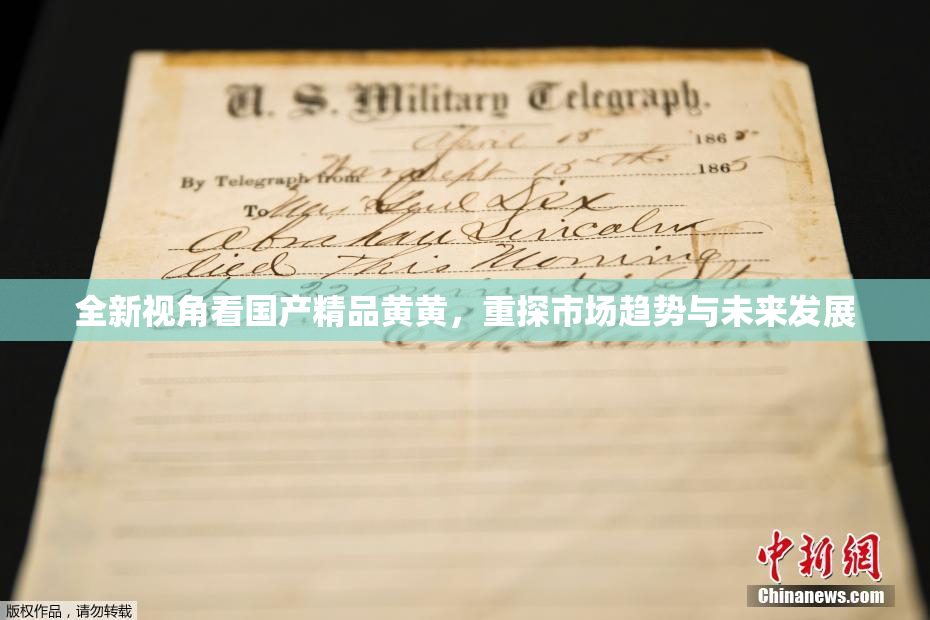 U. S. Military Telegraph.
April 15 1865
By Telegraph from War Dept 15th 1865
To Maj Genl Dix
Abraham Lincoln
died This Morning
22 minutes after
全新视角看国产精品黄黄，重探市场趋势与未来发展
E. M. Stanton
中新网
Chinanews.com
版权作品，请勿转载